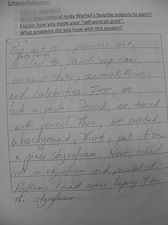 What were some of Andy Warhol's favorite subjects to paint?
Explain how you made your "self portrait print".
What problems did you have with this project?
Pop art is popular art.
liked to paint soup cans,
comic strips, animals, flowers
and celebrities. First, we
took a photo. Second we traced
with pencil. Then, we added
a background. Third, put it on
a piece styrofoam. Next, rolled
ink on styrofoam and printed it.
Problems I had were taping
the styrofoam.